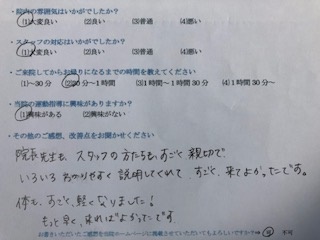 ・院内の雰囲気はいかがでしたか？
(1)大変良い (2)良い (3)普通 (4)悪い
・スタッフの対応はいかがでしたか？
(1)大変良い (2)良い (3)普通 (4)悪い
・ご来院してからお帰りになるまでの時間を教えてください
(1)～30分 (2)30分～1時間 (3)1時間～1時間30分 (4)1時間30分～
・当院の運動指導に興味がありますか？
(1)興味がある (2)興味がない
・その他のご感想、改善点をお聞かせください
院長先生も、スタッフの方たちも、すごく親切で
いろいろわかりやすく説明してくれて、すごく、来てよかったです。
体も、すごく、軽くなりました！
もっと早く、来ればよかったです
お書きいただいたご感想を当院ホームページに掲載させていただいてもよろしいですか？⇒ 可 不可